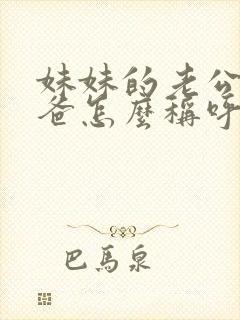 妹妹的老公
爸怎麼稱呼
巴馬泉